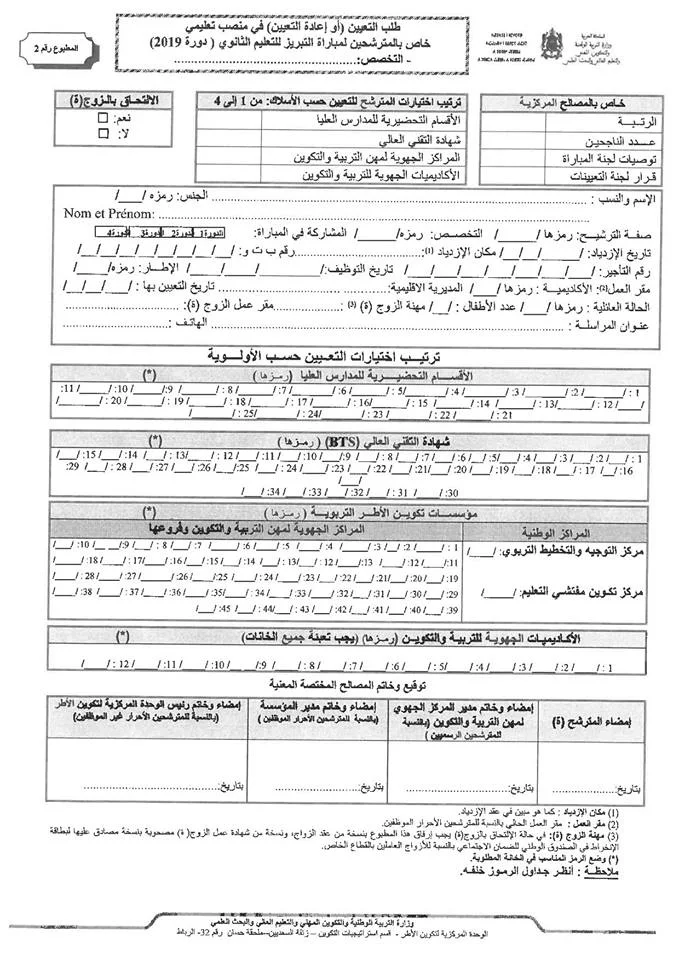 المطبوع رقم 2
طلب التعيين (أو إعادة التعيين) في منصب تعليمي
خاص بالمترشحين لمباراة التبريز للتعليم الثانوي ( دورة 2019)
- التخصص:
المملكة المغربية
وزارة التربية الوطنية
والتكوين المهني
والتعليم العالي والبحث العلمي
خاص بالمصالح المركزية
الرتبة
عدد الناجحين
توصيات لجنة المباراة
قرار لجنة التعيينات
ترتيب اختيارات المترشح للتعيين حسب الأسلاك: من 1 إلى 4
الأقسام التحضيرية للمدارس العليا
شهادة التقني العالي
المراكز الجهوية لمهن التربية والتكوين
الأكاديميات الجهوية للتربية والتكوين
الالتحاق بالزوج(ة)
نعم: □
لا: □
الإسم والنسب : الجنس: رمزه /___/
Nom et Prénom:
صفة الترشيح: رمزها /___/ التخصص: رمزه/___/ المشاركة في المباراة: الدورة1 الدورة2 الدورة3 الدورة4
تاريخ الإزدياد: /___/___/___/ مكان الإزدياد (1): رقم ب ت و: /__/__/__/__/__/__/__/__/
رقم التأجير: /__/__/__/__/__/__/__/ تاريخ التوظيف: /___/___/___/ الإطار: رمزه/___/
مقر العمل(2): الأكاديمية : رمزها /___/ المديرية الاقليمية: تاريخ التعيين بها : /___/___/___/
الحالة العائلية : رمزها /___/ عدد الأطفال : /__/ مهنة الزوج (ة) (3) مقر عمل الزوج (ة):
عنوان المراسلة : الهاتف :
ترتيب اختيارات التعيين حسب الأولوية
الأقسام التحضيرية للمدارس العليا (رمزها ) (*)
1 : /___/ 2 : /___/ 3 : /___/ 4 : /___/ 5 : /___/ 6 : /___/ 7 : /___/ 8 : /___/ 9: /___/ 10: /___/ 11:
/___/ 12 : /___/ 13: /___/ 14 : /___/ 15 : /___/ 16: /___/ 17 : /___/ 18 : /___/ 19 : /___/ 20 : /___/
21: /___/ 22 : /___/ 23 : /___/ 24: /___/ 25: /___/
شهادة التقني العالي (BTS) ( رمزها ) (*)
1 : /___/ 2 : /___/ 3 : /___/ 4 : /___/ 5: /___/ 6 : /___/ 7: /___/ 8 : /___/ 9: /___/ 10: /___/ 11: /___/ 12 : /___/ 13: /___/ 14 : /___/ 15: /___/
16: /___/ 17 : /___/ 18: /___/ 19: /___/ 20: /___/ 21: /___/ 22: /___/ 23: /___/ 24 : /___/ 25: /___/ 26 : /___/ 27 : /___/ 28 : /___/ 29:
/___/
30: /___/ 31 : /___/ 32: /___/ 33: /___/ 34: /___/
مؤسسات تكوين الأطر التربوية ( رمزها ) (*)
المراكز الوطنية
مركز التوجيه والتخطيط التربوي: /___/
مركز تكوين مفتشي التعليم: /___/
المراكز الجهوية لمهن التربية والتكوين وفروعها
1 : /___/ 2 : /___/ 3 : /___/ 4 : /___/ 5 : /___/ 6 : /___/ 7 : /___/ 8 : /___/ 9: /___/ 10: /___/
11: /___/ 12 : /___/ 13: /___/ 14 : /___/ 15: /___/ 16 : /___/ 17: /___/ 18: /___/
19: /___/ 20: /___/ 21: /___/ 22: /___/ 23: /___/ 24 : /___/ 25: /___/ 26: /___/ 27: /___/ 28: /___/
29: /___/ 30: /___/ 31: /___/ 32: /___/ 33: /___/ 34: /___/ 35: /___/ 36: /___/ 37: /___/ 38: /___/
39: /___/ 40: /___/ 41: /___/ 42: /___/ 43: /___/ 44: /___/ 45: /___/
الأكاديميات الجهوية للتربية والتكوين (رمزها) (يجب تعبئة جميع الخانات) (*)
1 : /___/ 2 : /___/ 3 : /___/ 4 : /___/ 5: /___/ 6 : /___/ 7: /___/ 8 : /___/ 9: /___/ 10: /___/ 11: /___/ 12 : /___/
توقيع وخاتم المصالح المختصة المعنية
إمضاء المترشح (ة)
بتاريخ:
إمضاء وخاتم مدير المركز الجهوي
لمهن التربية والتكوين (بالنسبة
للمترشحين الرسميين )
بتاريخ:
إمضاء وخاتم مدير المؤسسة
(بالنسبة للمترشحين الأحرار الموظفين )
بتاريخ:
إمضاء وخاتم رئيس الوحدة المركزية لتكوين الأطر
(بالنسبة للمترشحين الأحرار غير الموظفين)
بتاريخ:
(1) مكان الإزدياد : كما هو مبين في عقد الإزدياد.
(2) مقر العمل : مقر العمل الحالي بالنسبة للمترشحين الأحرار الموظفين.
(3) مهنة الزوج (ة): في حالة الإلتحاق بالزوج(ة) يجب إرفاق هذا المطبوع بنسخة من عقد الزواج، ونسخة من شهادة عمل الزوج( ة) مصحوبة بنسخة مصادق عليها لبطاقة
الإنخراط في الصندوق الوطني للضمان الاجتماعي بالنسبة للأزواج العاملين بالقطاع الخاص.
(*) وضع الرمز المناسب في الخانة المطلوبة.
ملاحظة : أنظر جداول الرموز خلفه.
وزارة التربية الوطنية والتكوين المهني والتعليم العالي والبحث العلمي
الوحدة المركزية لتكوين الأطر - قسم استراتيجيات التكوين – زنقة السعديين–ملحقة حسان رقم 32- الرباط